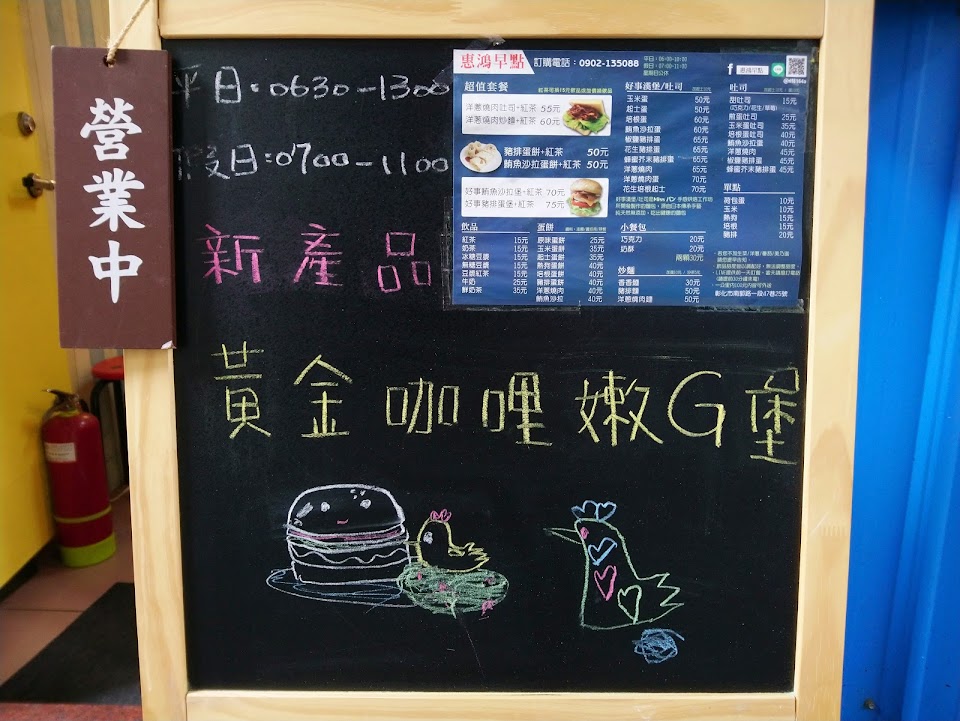 營業中
平日:0630-1300
假日:0700-1100
新產品
黃金咖哩嫩G堡
惠鴻早點 訂購電話:0902-135088
平日:06:30-10:00
假日:07:00-11:30
星期日公休
惠鴻早點
超值套餐
洋蔥燒肉吐司+紅茶 55元
洋蔥燒肉炒麵+紅茶 60元
豬排蛋餅+紅茶 50元
鮪魚沙拉蛋餅+紅茶 50元
好事鮪魚沙拉堡+紅茶 70元
好事豬排蛋堡+紅茶 75元
飲品
紅茶 15元
奶茶 15元
冰糖豆漿 15元
無糖豆漿 15元
豆漿紅茶 15元
牛奶 25元
鮮奶茶 35元
蛋餅
原味蛋餅 25元
玉米蛋餅 35元
起士蛋餅 35元
熱狗蛋餅 40元
培根蛋餅 40元
豬排蛋餅 40元
洋蔥燒肉 40元
鮪魚沙拉 40元
好事漢堡/吐司
玉米蛋 50元
起士蛋 50元
培根蛋 60元
鮪魚沙拉蛋 60元
椒鹽豬排蛋 65元
花生豬排蛋 65元
蜂蜜芥末豬排蛋 65元
洋蔥燒肉 65元
洋蔥燒肉蛋 70元
花生培根起士 70元
小餐包
巧克力 20元
奶酥 20元
兩顆30元
炒麵
香香麵 30元
豬排麵 50元
洋蔥燒肉麵 50元
吐司
甜吐司 15元
(巧克力/花生/草莓)
煎蛋吐司 25元
玉米蛋吐司 35元
培根蛋吐司 40元
鮪魚沙拉蛋 40元
洋蔥燒肉 45元
椒鹽豬排蛋 45元
蜂蜜芥末豬排蛋 45元
單點
荷包蛋 10元
玉米 10元
熱狗 10元
培根 15元
豬排 20元
彰化市南郭路一段47巷25號